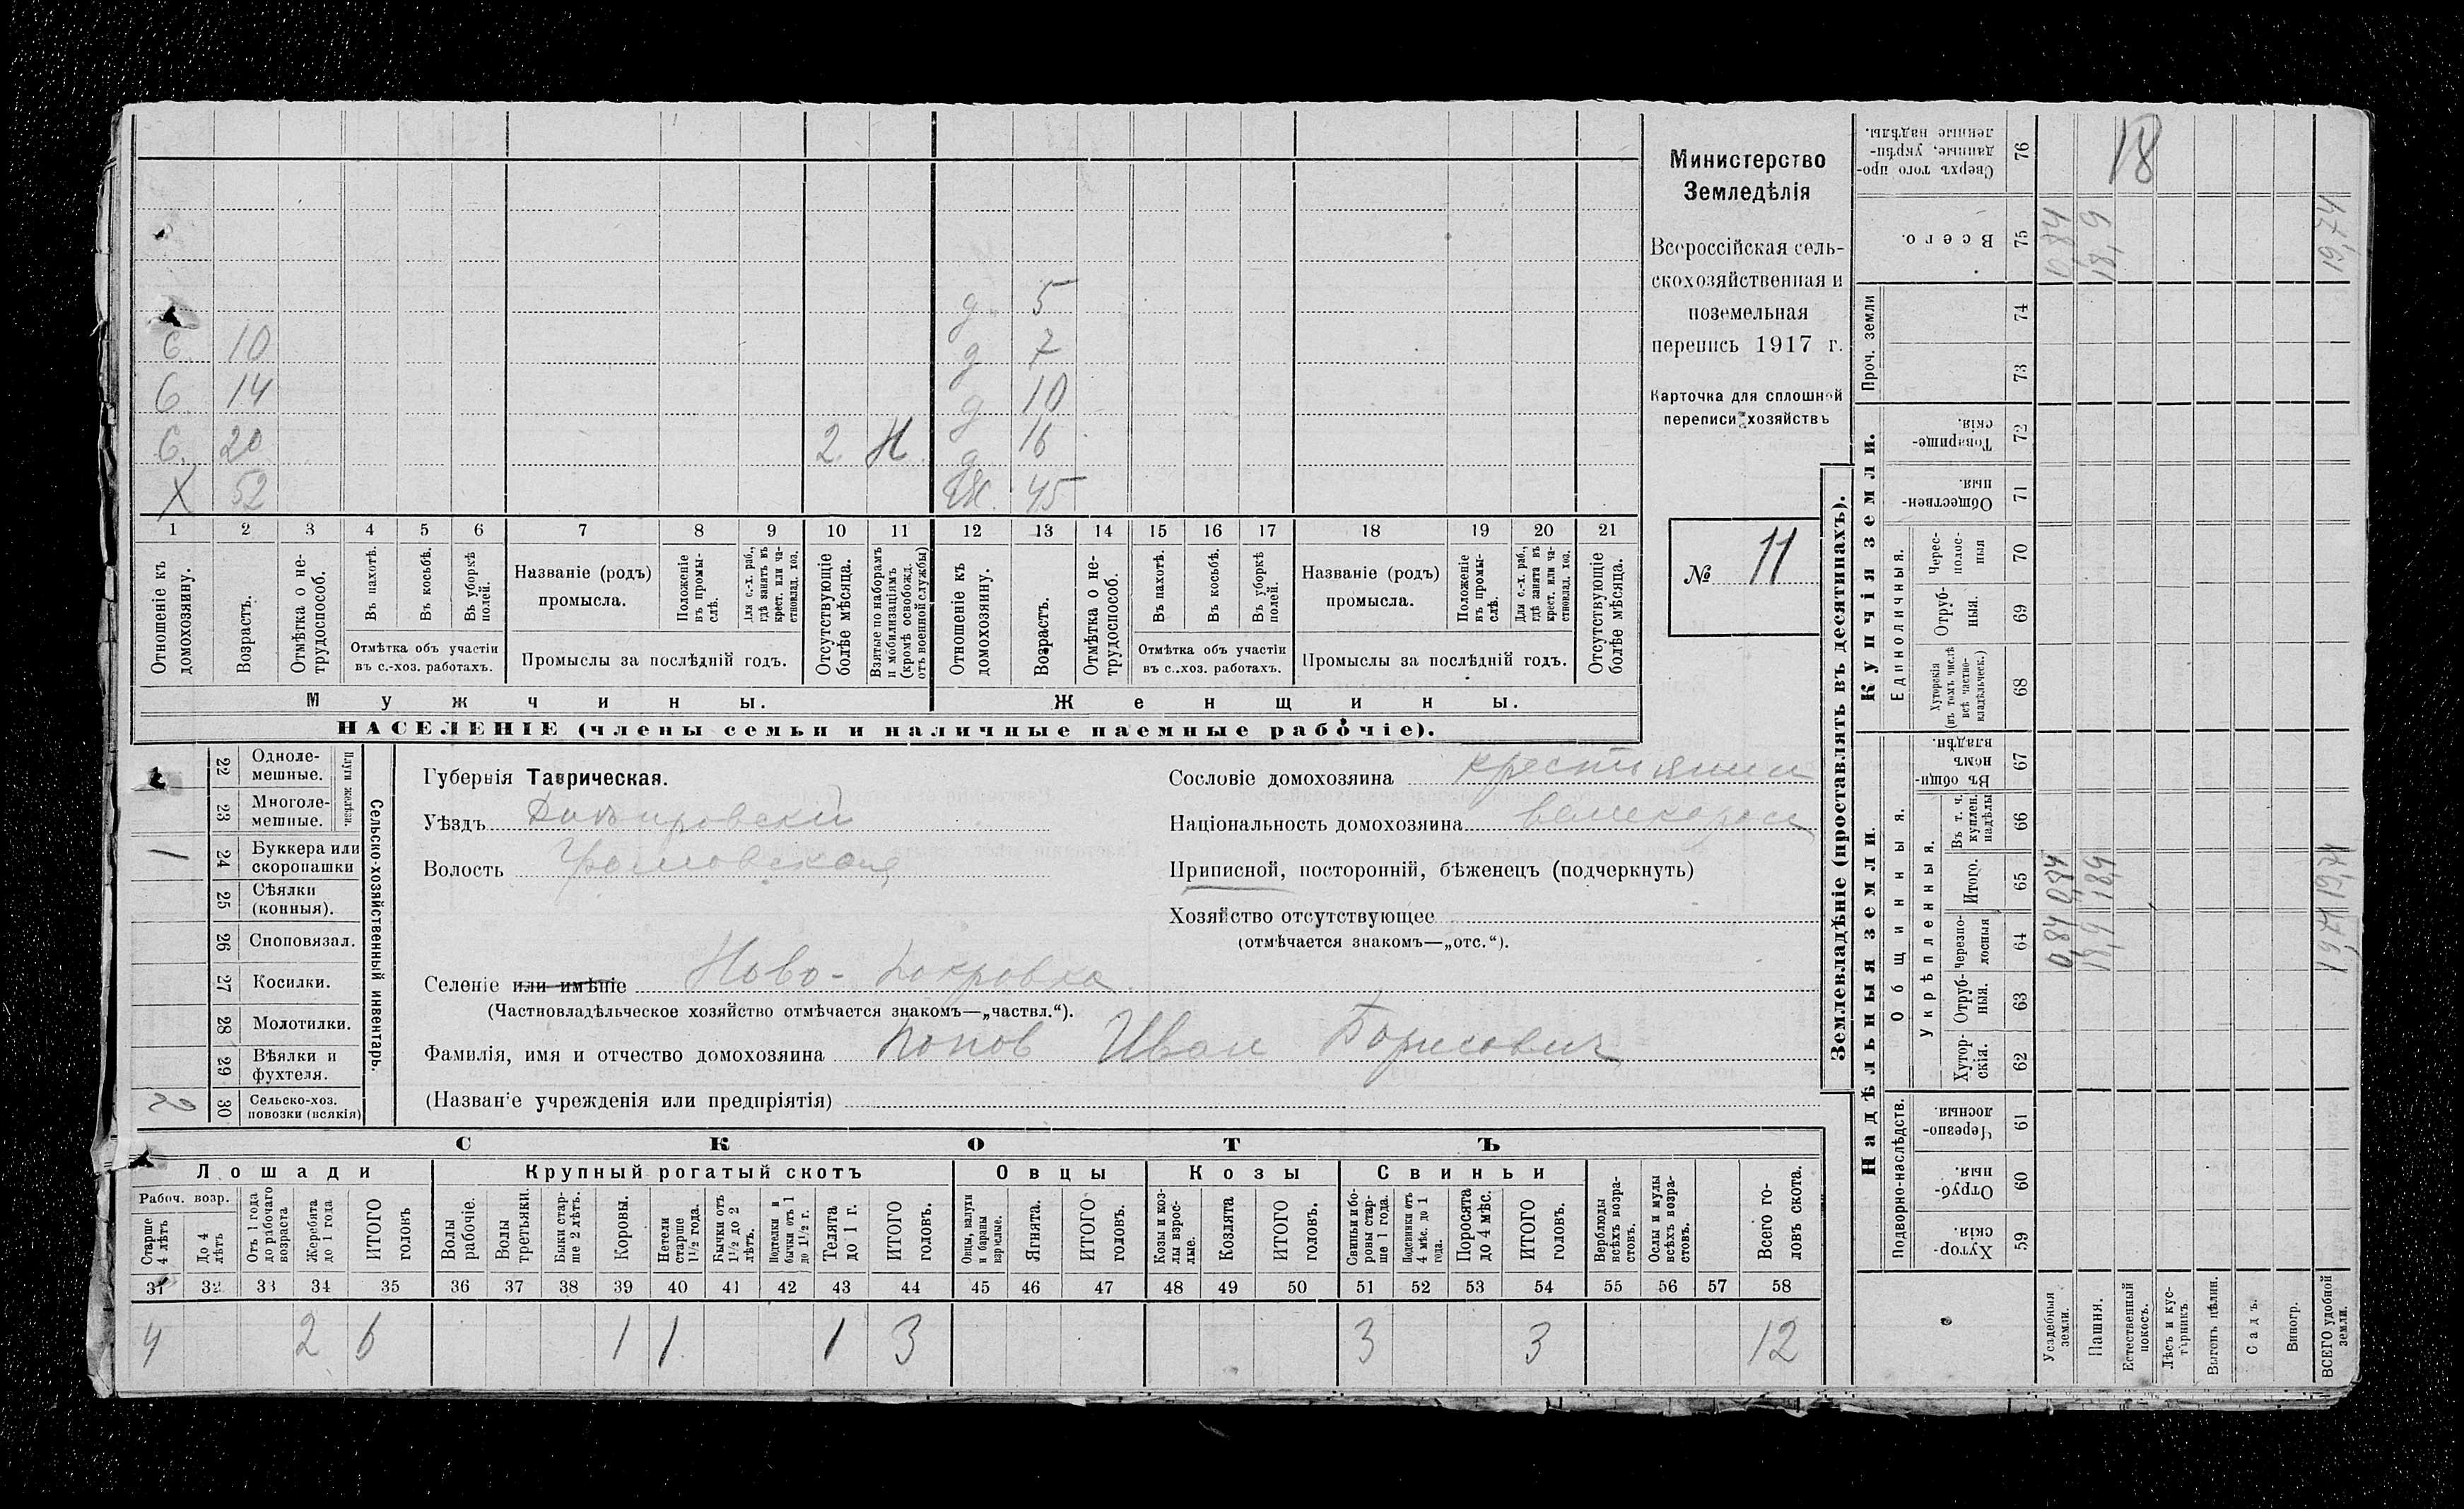 д 5
С 10 д 7
С 14 д 10
С. 20 2 Н д 16
Х 52 Ж. 45
1 2 3 4 5 6 7 8 9 10 11 12 13 14 15 16 17 18 19 20 21
Отношеніе къ домохозяину.
Возрастъ.
Отмѣтка о не-
трудоспособ.
Въ пахотѣ.
Въ косьбѣ.
Въ уборкѣ полей.
Отмѣтка объ участіи
въ с.-хоз. работахъ.
Названіе (родъ)
промысла.
Положеніе въ промы-
слѣ.
Для с.-х. раб., гдѣ занятъ въ крест. или ча-
стновлад. хоз.
Промыслы за послѣдній годъ.
Отсутствующіе болѣе мѣсяца.
Взятые по наборамъ и мобилизаціямъ (кромѣ освобожд. отъ военной службы)
Отношеніе къ домохозяину.
Возрастъ.
Отмѣтка о не-
трудоспособ.
Въ пахотѣ.
Въ косьбѣ.
Въ уборкѣ полей.
Отмѣтка объ участіи
въ с.-хоз. работахъ.
Названіе (родъ)
промысла.
Положеніе въ промы-
слѣ.
Для с.-х. раб., гдѣ занята въ крест. или ча-
стновлад. хоз.
Промыслы за послѣдній годъ.
Отсутствующіе болѣе мѣсяца.
Мужчины. Женщины.
НАСЕЛЕНІЕ (члены семьи и наличные наемные рабочіе).
Министерство
Земледѣлія
Всероссійская сель-
скохозяйственная и
поземельная
перепись 1917 г.
Карточка для сплошной
переписи хозяйствъ
№ 11
22 Одноле-
мешные.
23 Многоле-
мешные.
Плуги желѣзн.
24 Буккера или
скоропашки
25 Сѣялки
(конныя).
26 Сноповязал.
27 Косилки.
28 Молотилки.
29 Вѣялки и
фухтеля.
30 Сельско-хоз.
повозки (всякія)
1
2
Сельско-хозяйственный инвентарь.
Губернія Таврическая.
Уѣздъ Днѣпровскій
Волость
Селеніе или имѣніе Ново-Покровка
(Частновладѣльческое хозяйство отмѣчается знакомъ—„частвл.“).
Фамилія, имя и отчество домохозяина Попов Иван Борисович
(Названіе учрежденія или предпріятія)
Сословіе домохозяина крестьянин
Національность домохозяина великоросс
Приписной, посторонній, бѣженецъ (подчеркнуть)
Хозяйство отсутствующее
(отмѣчается знакомъ—„отс.“).
СКОТЪ
Лошади Крупный рогатый скотъ Овцы Козы Свиньи
Рабоч. возр.
Старше 4 лѣтъ
До 4 лѣтъ
Отъ 1 года до рабочаго возраста
Жеребята до 1 года
ИТОГО головъ
Волы рабочіе.
Волы третьяки.
Быки стар-
ше 2 лѣтъ.
Коровы.
Нетели старше 1½ года.
Бычки отъ 1½ до 2 лѣтъ.
Подтелки и бычки отъ 1 до 1½ г.
Телята до 1 г.
ИТОГО головъ.
Овцы, валухи и бараны взрослые.
Ягнята.
ИТОГО головъ.
Козы и коз-
лы взрос-
лые.
Козлята
ИТОГО головъ.
Свиньи и бо-
ровы стар-
ше 1 года.
Подсвинки отъ 4 мѣс. до 1 года.
Поросята до 4 мѣс.
ИТОГО головъ.
Верблюды всѣхъ возра-
стовъ.
Ослы и мулы всѣхъ возра-
стовъ.
Всего го-
ловъ скота.
31 32 33 34 35 36 37 38 39 40 41 42 43 44 45 46 47 48 49 50 51 52 53 54 55 56 57 58
4 2 6 1 1 1 3 3 3 12
Землевладѣніе (проставлять въ десятинахъ).
Надѣльныя земли.
Купчія земли.
Проч. земли
Подворно-наслѣдств.
Общинныя.
Укрѣпленныя.
Единоличныя.
76 Сверхъ того про-
данные, укрѣп-
ленные надѣлы.
75 Всего.
74
73
72 Товарище-
скія.
71 Обществен-
ныя.
70 Черес-
полос-
ныя
69 Отруб-
ныя.
68 Хуторскія (въ томъ числѣ всѣ частно-
владѣльческ.)
67 Въ общи-
номъ владѣн.
66 Въ т. ч. куплен. надѣлы
65 Итого.
64 Черезпо-
лосныя
63 Отруб-
ныя.
62 Хутор-
скія.
61 Черезпо-
лосныя.
60 Отруб-
ныя.
59 Хутор-
скія.
Усадебныя земли.
Пашня.
Естественный покосъ.
Лѣсъ и кус-
тарникъ.
Выгонъ цѣлин.
Садъ.
Виногр.
ВСЕГО удобной земли.
18
0,84 18,9 19,74
0,84 18,9 19,74
0,84 18,9 19,74